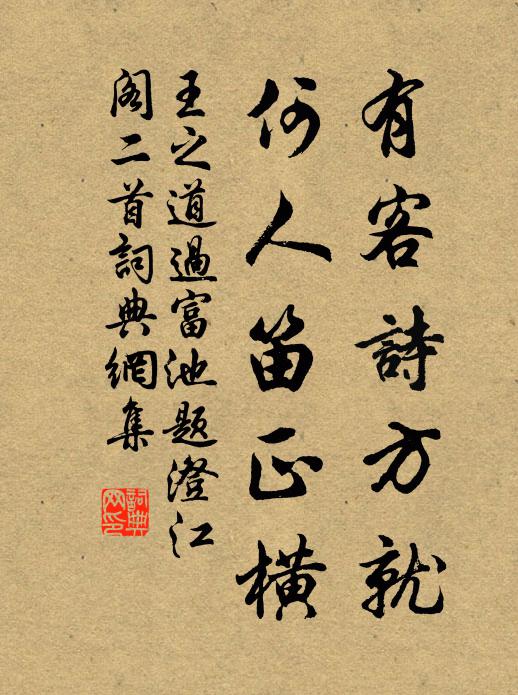 有客詩方就
何人笛正橫
王之道過富池题澄江
阁二首詞典網集
詞典
网印